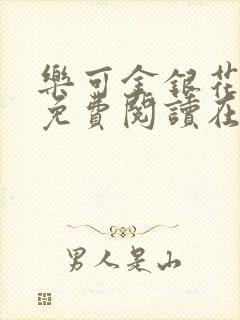 樂可金銀花
免費閱讀在
男人是山